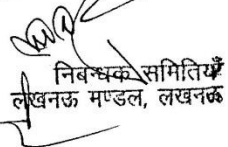 निबन्धक समितियाँ
लखनऊ मण्डल, लखनऊ